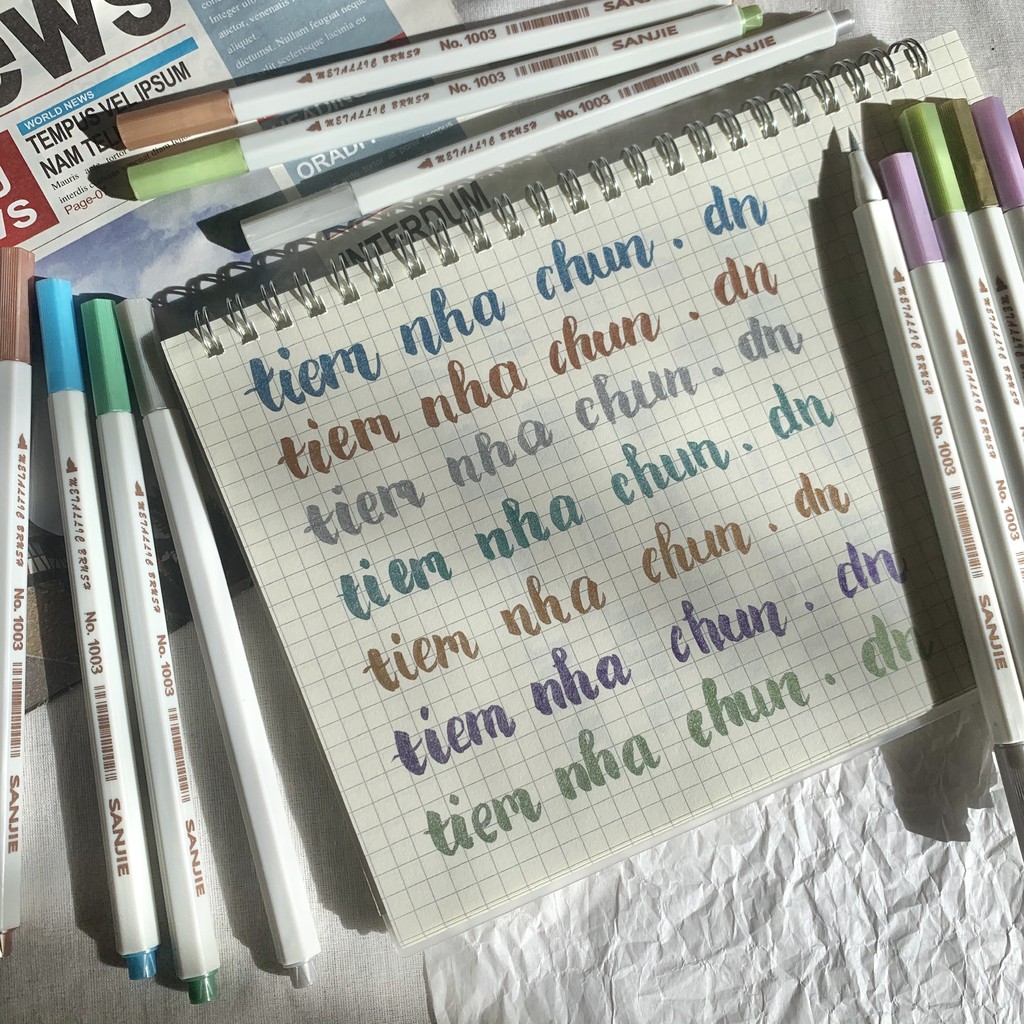 ews
WORLD NEWS
TEMPUS VEL IPSUM
NAM TE
Mauris
Page-0
WS
Integer
auctor, vestibulum
aliquet
dictumst. Nullam feugiat neque
scelerisque lacinia eu
INTERDUM
METALLIC BRUSH No. 1003 SANJIE
METALLIC BRUSH No. 1003 SANJIE
METALLIC BRUSH No. 1003 SANJIE
tiem nha chun . dn
tiem nha chun . dn
tiem nha chun . dn
tiem nha chun . dn
tiem nha chun . dn
tiem nha chun . dn
tiem nha chun . dn
METALLIC BRUSH No. 1003 SANJIE
METALLIC BRUSH No. 1003 SANJIE
METALLIC BRUSH No. 1003 SANJIE
METALLIC BRUSH No. 1003 SANJIE
METALLIC BRUSH No. 1003
METALLIC BRUSH No. 1003